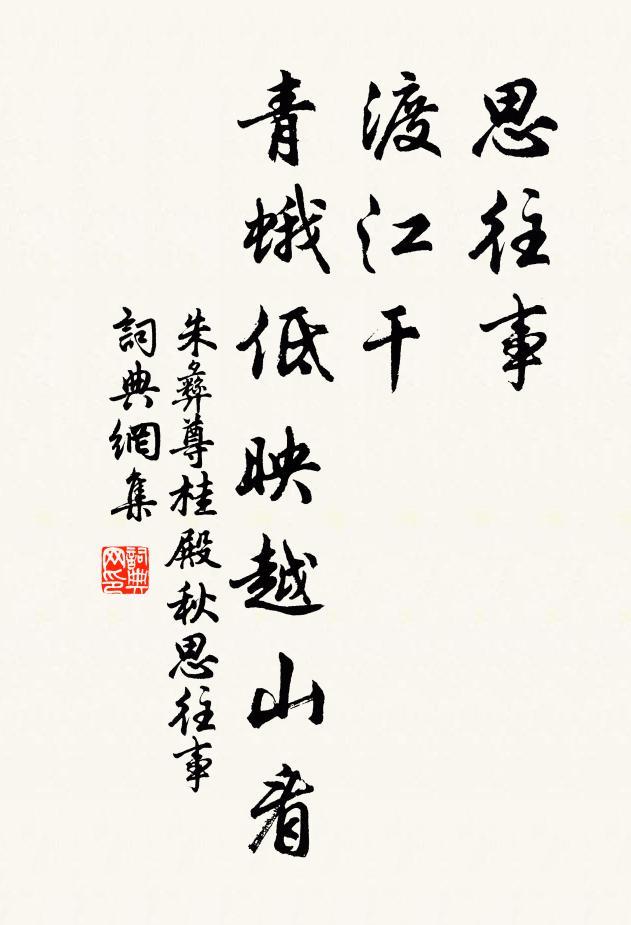 思往事
渡江干
青蛾低映越山看
朱彝尊桂殿秋思往事
詞典網集
詞典网印